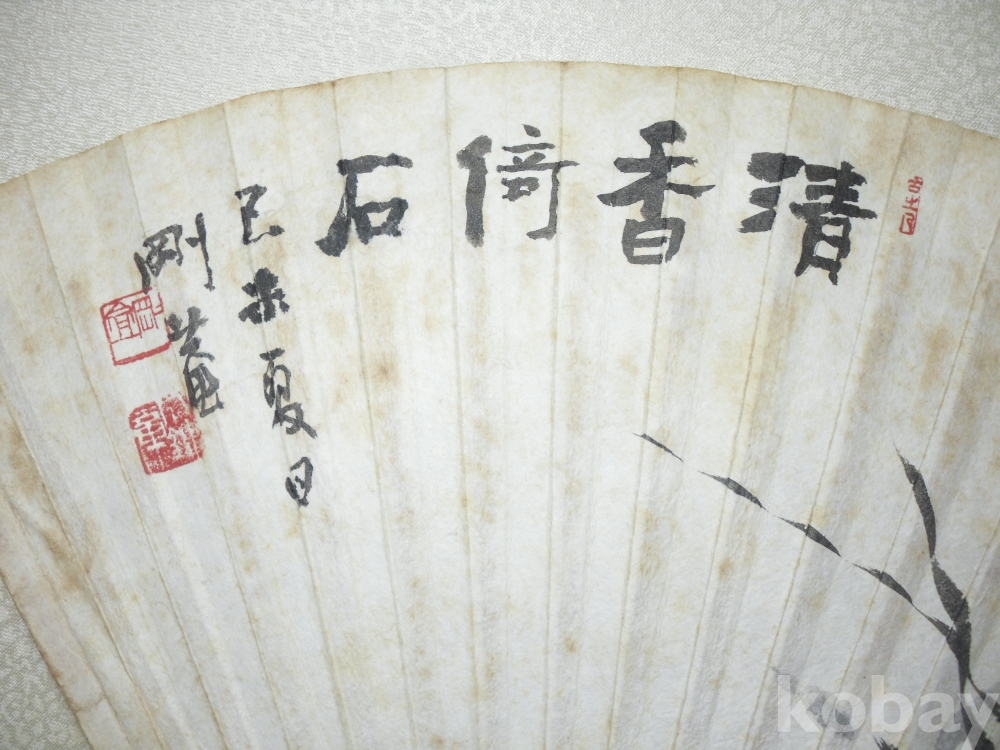 清香倚石
己未夏日
剛菴
kobay